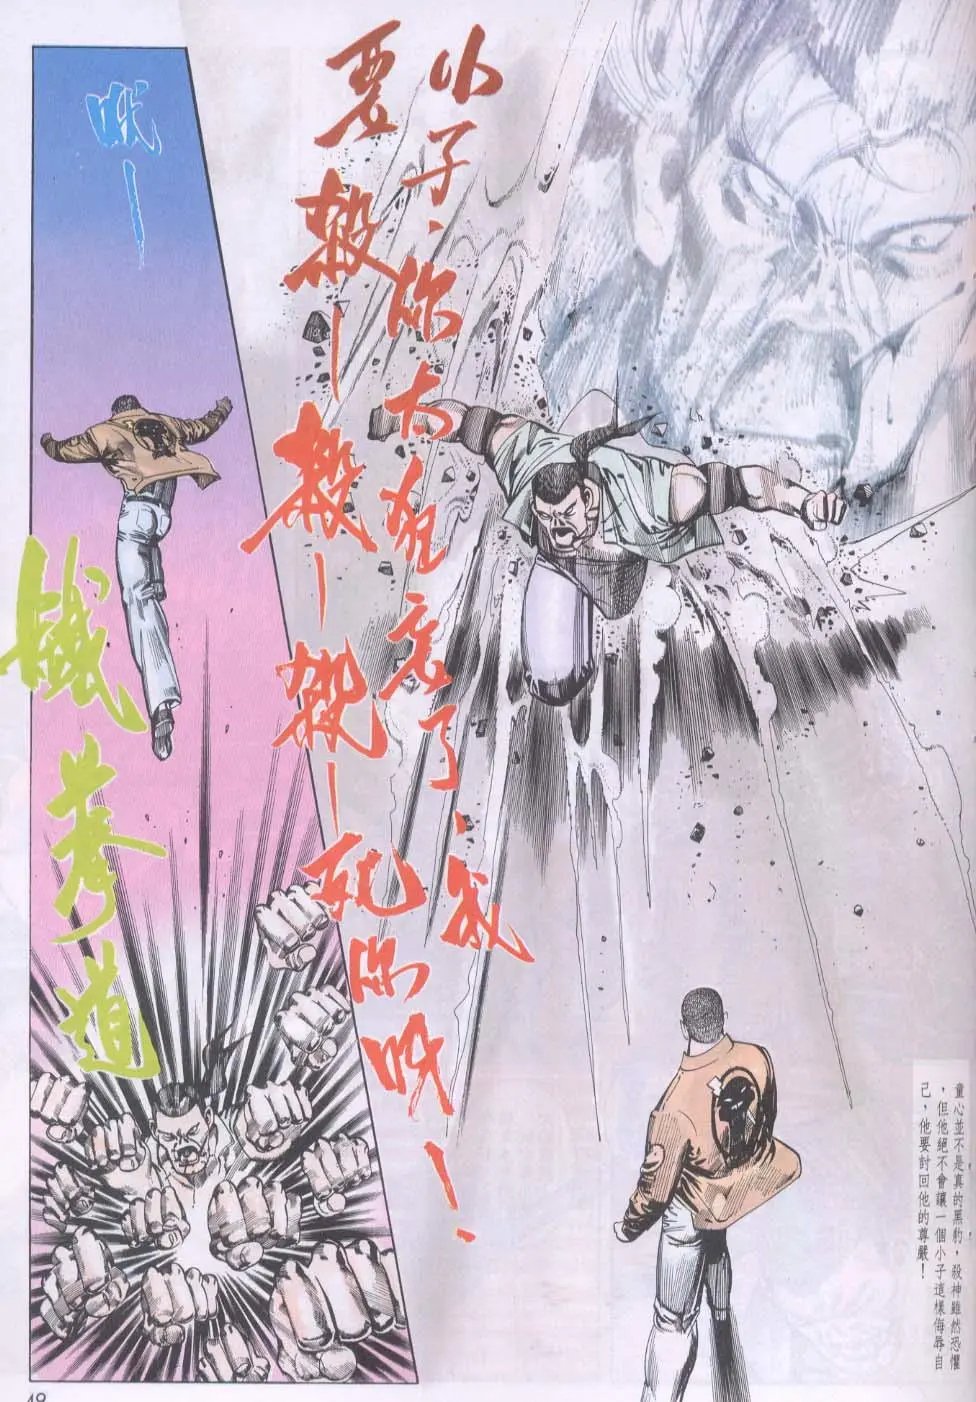 小子、你太狂妄了、我
要殺—殺—殺—死你呀！
童心並不是真的黑豹，殺神雖然恐懼
，但他絕不會讓一個小子這樣侮辱自
己，他要討回他的尊嚴！
鐵拳道
49